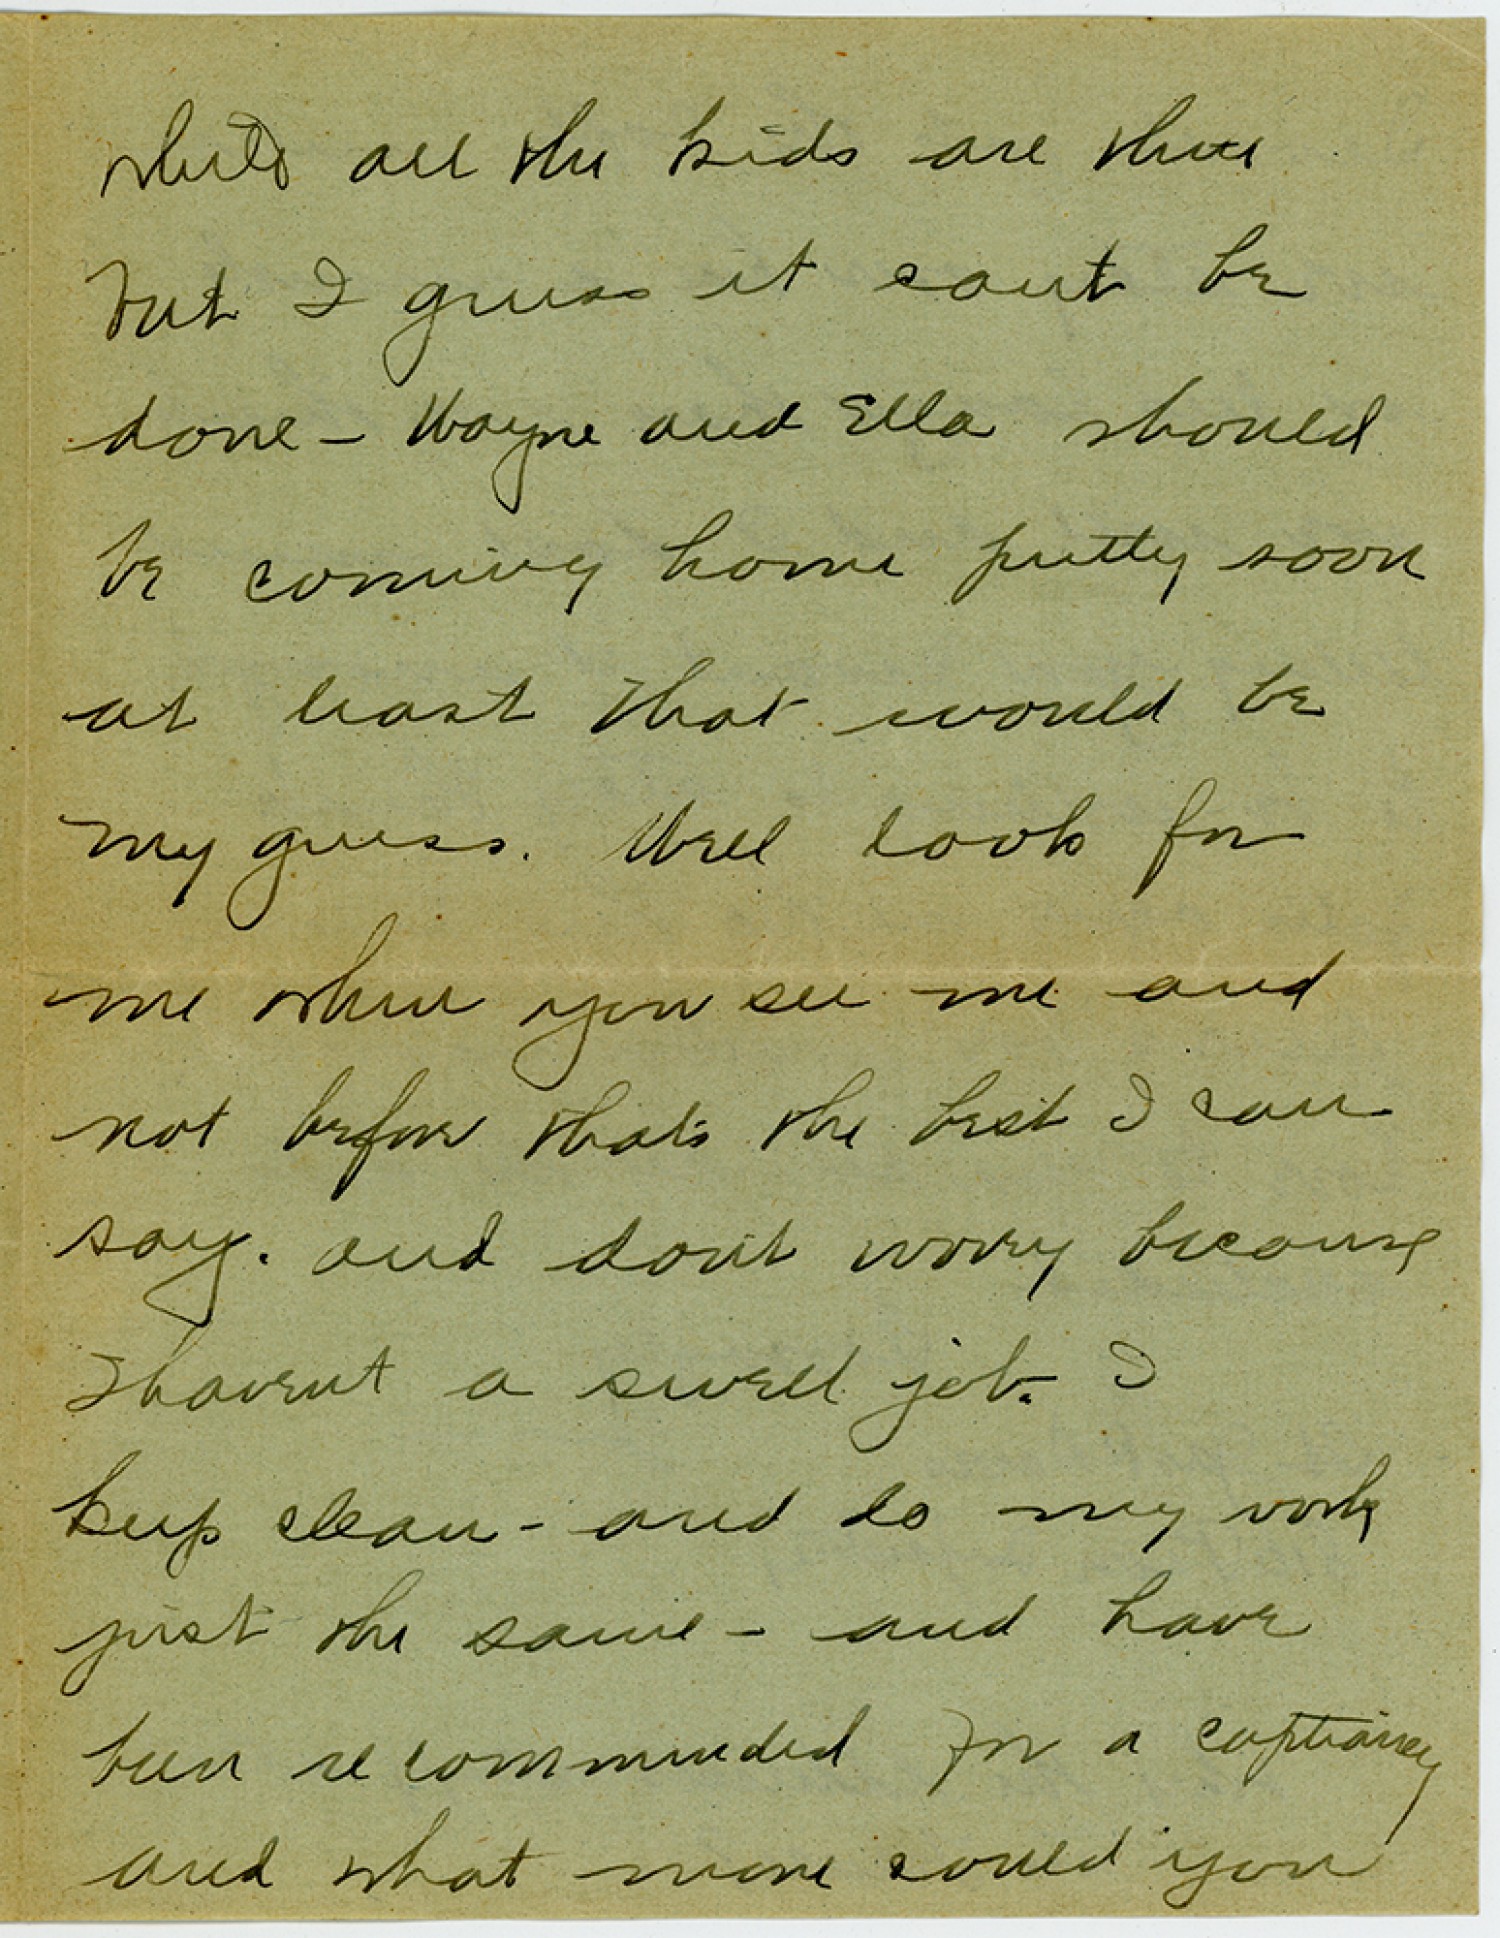 while all the kids are there
but I guess it cant be
done - Wayne and Ella should
be coming home pretty soon
at least that would be
my guess. Well look for
me when you see me and
not before thats the best I can
say. and dont worry because
I havent a swell job. I
keep clean - and do my work
just the same - and have
been recommended for a captiancy
and what more could you